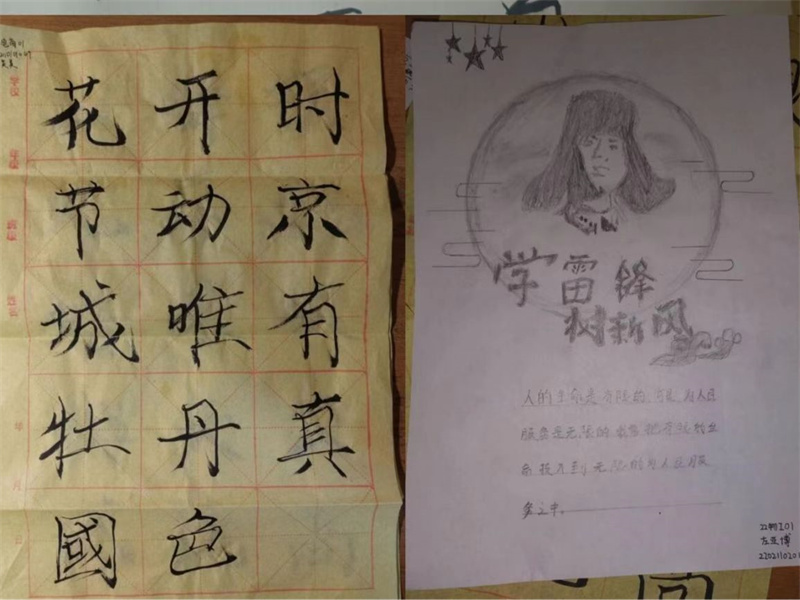 学校
年级
班级
姓名
年
月
日
花开时
节动京
城唯有
牡丹真
國色
学雷锋
树新风
人的生命是有限的,可是,为人民
服务是无限的,我要把有限的生
命投入到无限的为人民服
务之中。
左亚博
2202110201